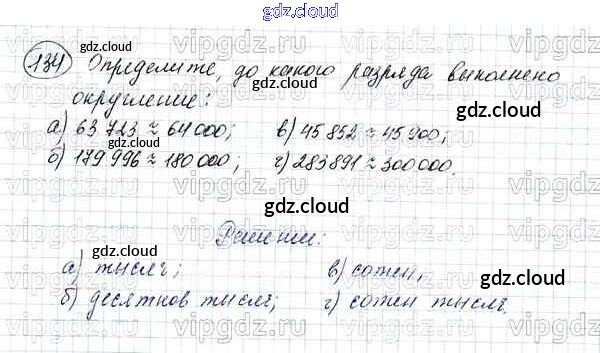 gdz.cloud
134 Определите, до какого разряда выполнено
округление:
а) 63 723 ≈ 64 000; в) 45 852 ≈ 45 900;
б) 179 996 ≈ 180 000; г) 283 891 ≈ 300 000.
Решение:
а) тысяч; в) сотен;
б) десятков тысяч; г) сотен тысяч.
gdz.cloud
gdz.cloud
gdz.cloud
gdz.cloud
gdz.cloud
gdz.cloud
gdz.cloud
vipgdz.ru